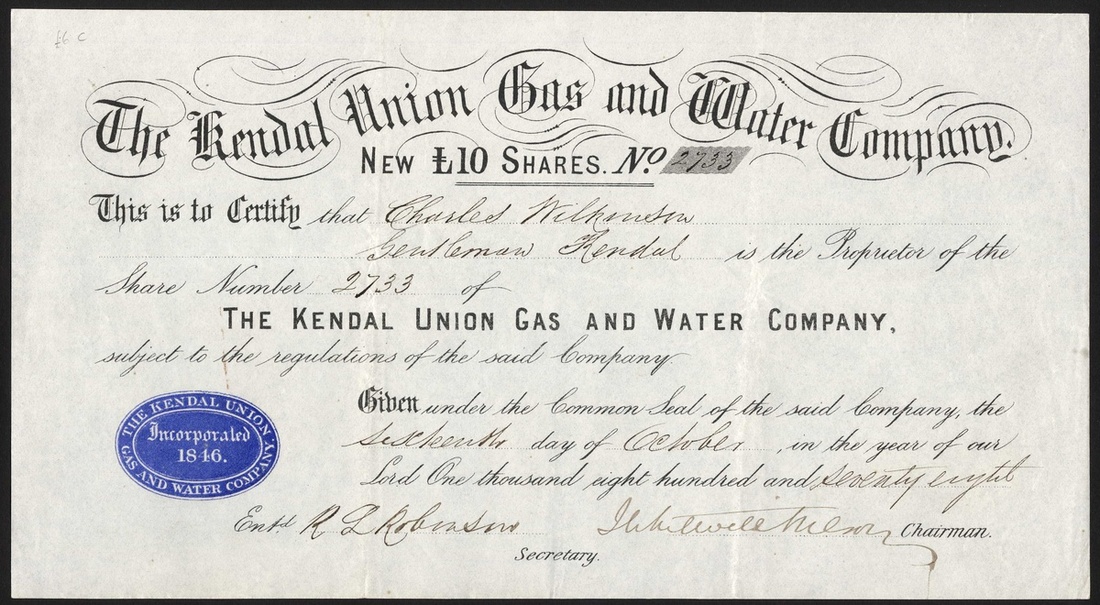 £6 C
The Kendal Union Gas and Water Company.
New £10 Shares. No. 2733
This is to Certify that Charles Wilkinson
Gentleman Kendal is the Proprietor of the
Share Number 2733 of
The Kendal Union Gas and Water Company,
subject to the regulations of the said Company
Given under the Common Seal of the said Company, the
sixteenth day of October, in the year of our
Lord One thousand eight hundred and seventy eight
THE KENDAL UNION
Incorporated
1846.
GAS AND WATER COMPANY
Entd R L Robinson
Chairman.
Secretary.